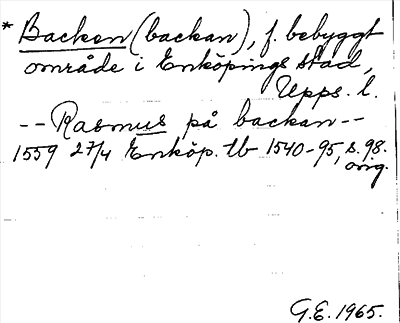 * Backen (backan), f. bebyggt
område i Enköpings stad,
Upps. l.
-- Rasmus på backan --
1559 27/4 Enköp. tb 1540-95, s. 98.
orig.
G.E. 1965.